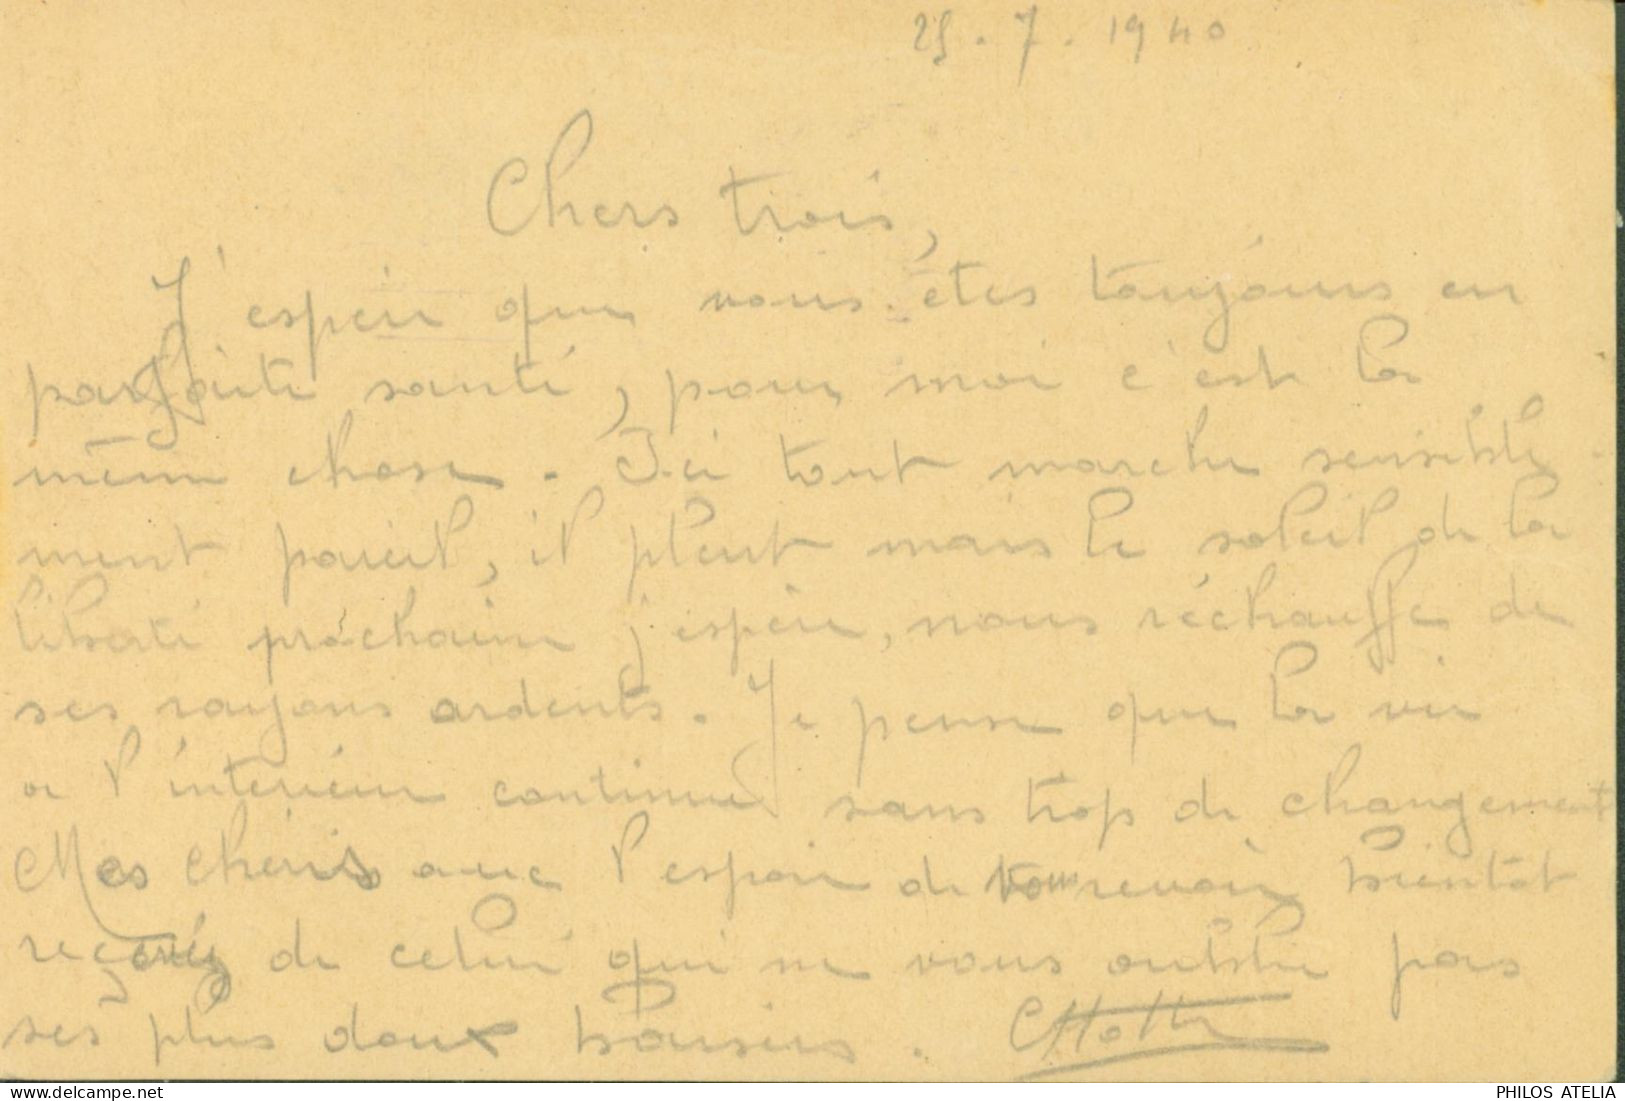 25.7.1940
Chers trois,
J'espère que vous êtes toujours en
parfaite santé, pour moi c'est la
même chose. Ici tout marche sensible-
ment pareil, il pleut mais le soleil de la
liberté prochaine j'espère, nous réchauffe de
ses rayons ardents. Je pense que la vie
a l'intérieur continue sans trop de changement
Mes chéris avec l'espoir de vous revoir bientôt
recevez de celui qui ne vous oublie pas
ses plus doux baisers.
PHILOS ATELIA